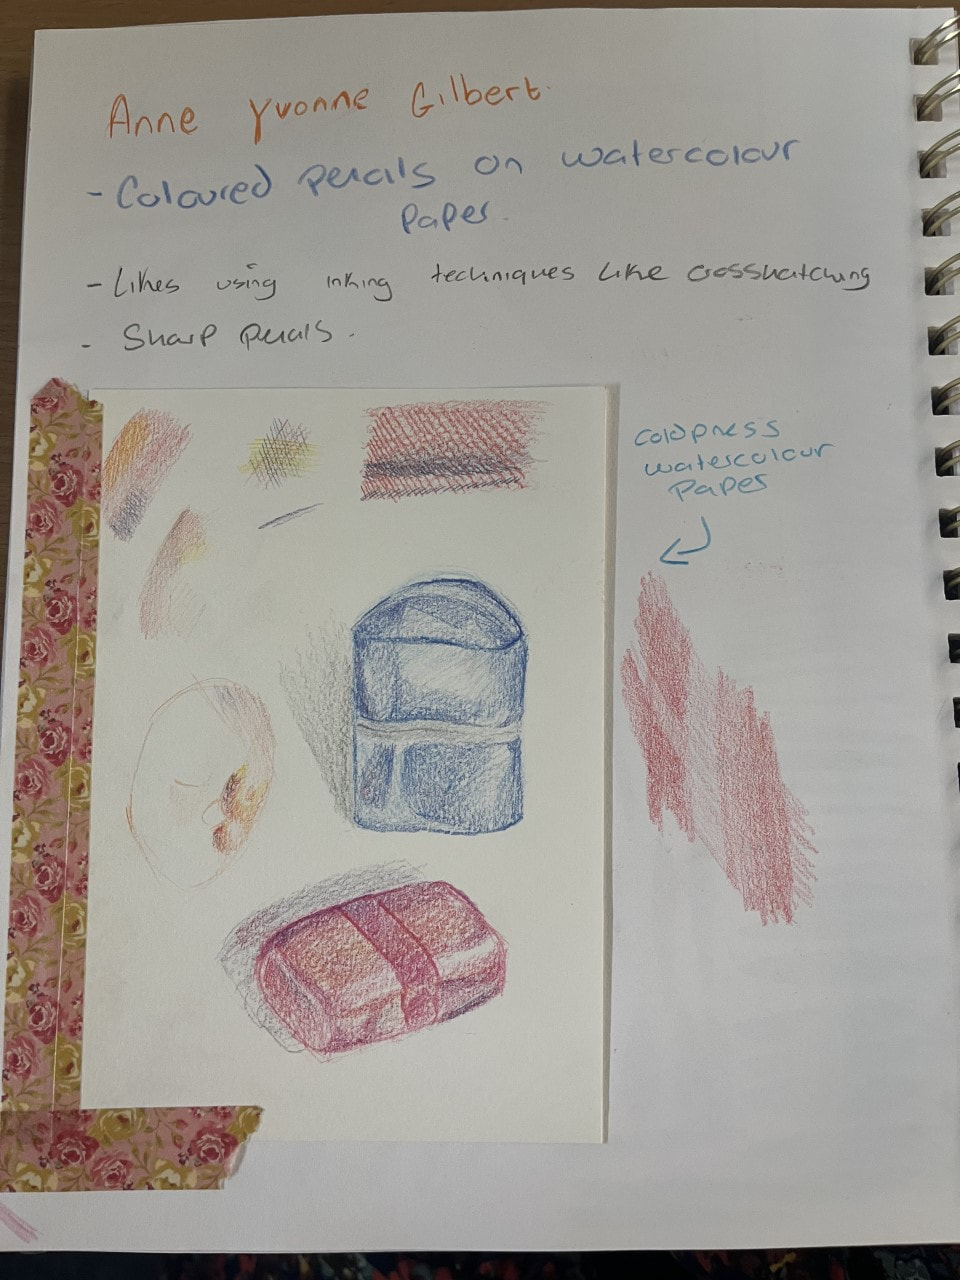 Anne Yvonne Gilbert.
- Coloured pencils on watercolour
paper.
- Likes using inking techniques like crosshatching
- Sharp pencils.
coldpress
watercolour
paper